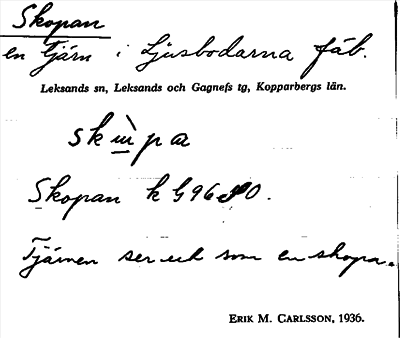 Skopan
en tjärn i Ljusbodarna fäb.
Leksands sn, Leksands och Gagnefs tg, Kopparbergs län.
Skopan k G
Tjärnen ser ut som en skopa.
ERIK M. CARLSSON, 1936.